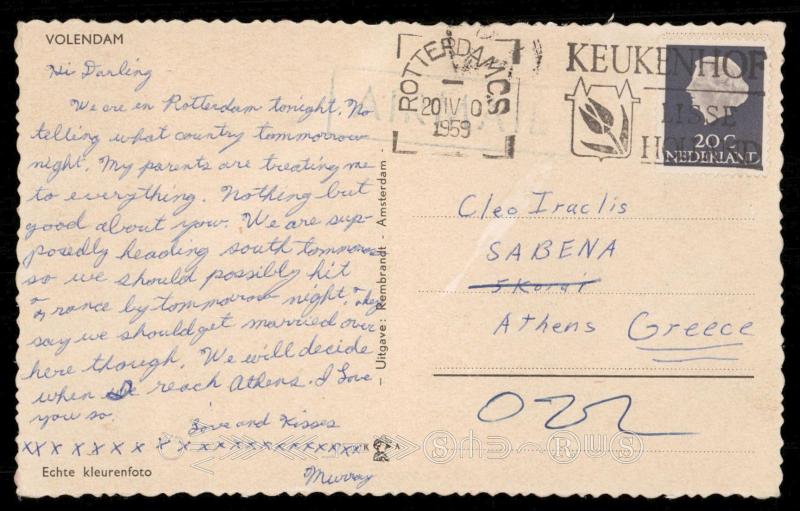 VOLENDAM
Hi Darling
We are en Rotterdam tonight. No
telling what country tommorrow
night. My parents are treating me
to everything. Nothing but
good about you. We are sup-
posedly heading south tommorrow
so we should possibly hit
France by tommorrow night. They
say we should get married over
here though. We will decide
when we reach Athens. I Love
you so.
Love and Kisses
xxx x x x x x x x x x x x x x x x x x x x x x
Murray
Echte kleurenfoto
Uitgave: Rembrandt - Amsterdam -
K A
AIR MAIL
ROTTERDAM CS
20 IV 0
1959
KEUKENHOF
LISSE
HOLLAND
20 C
NEDERLAND
Cleo Iraclis
SABENA
Athens Greece